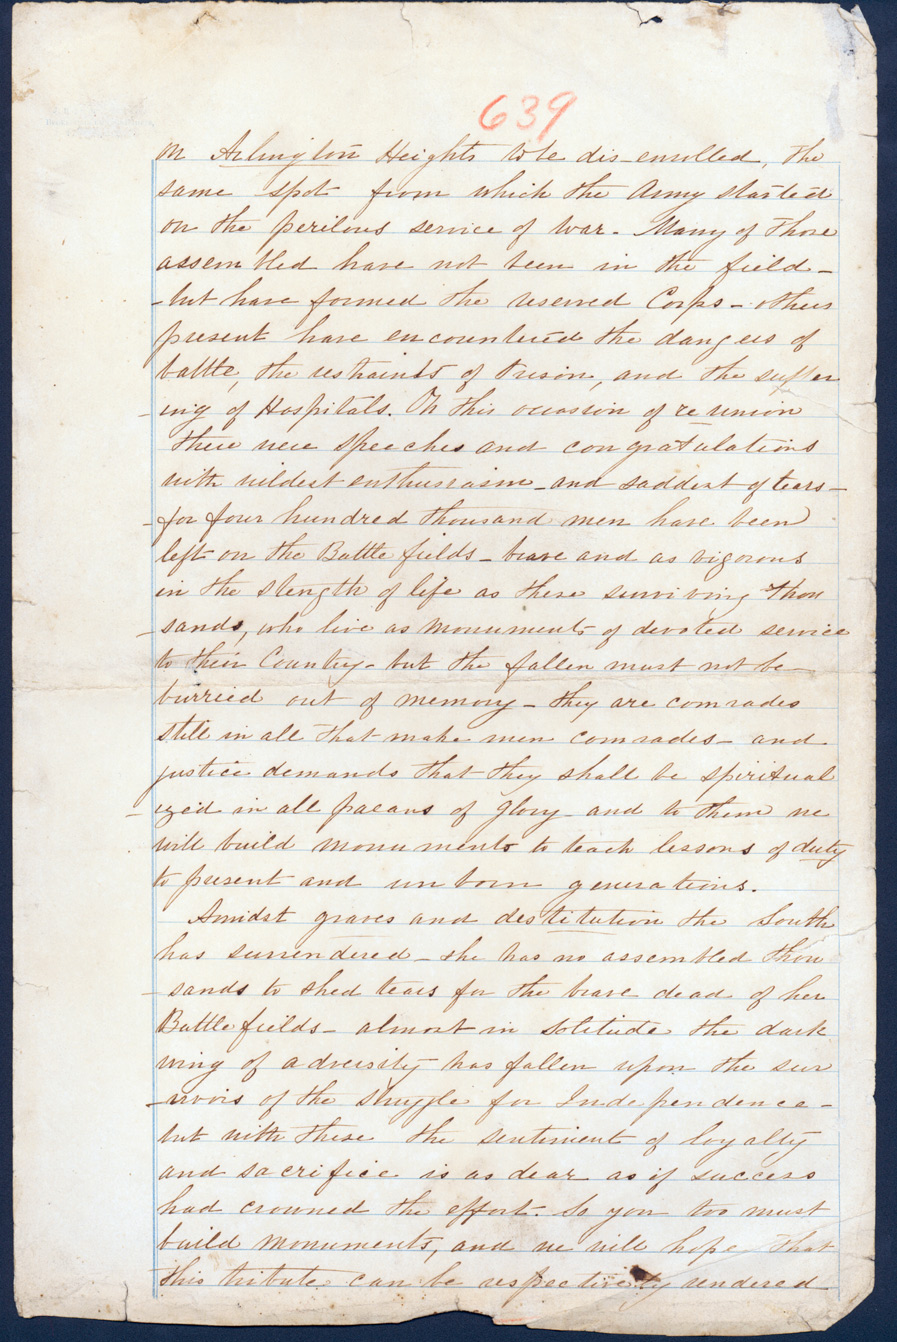 639
on Arlington Heights to be dis-enrolled, the
same spot from which the Army started
on the perilous service of war. Many of those
assembled have not been in the field -
- but have formed the reserved Corps - others
present have encountered the dangers of
battle, the restraints of Prison, and the suffer
- ing of Hospitals. On this occasion of re union
there were speeches and congratulations
with wildest enthusiasm - and saddest of tears -
- for four hundred thousand men have been
left on the Battle fields - brave and as vigorous
in the strength of life as these surviving thou
- sands, who live as monuments of devoted service
to their Country - but the fallen must not be
burried out of memory - they are comrades
still in all that make men comrades - and
justice demands that they shall be spiritual
- ized in all paeans of glory - and to them we
will build monuments to teach lessons of duty
to present and unborn generations.
Amidst graves and destitution the South
has surrendered - she has no assembled thou
- sands to shed tears for the brave dead of her
Battle fields - almost in solitude the dark
wing of adversity has fallen upon the sur
- vivors of the struggle for Independence -
but with these the sentiment of loyalty
and sacrifice is as dear as if success
had crowned the effort. So you too must
build monuments, and we will hope that
this tribute can be respectively rendered